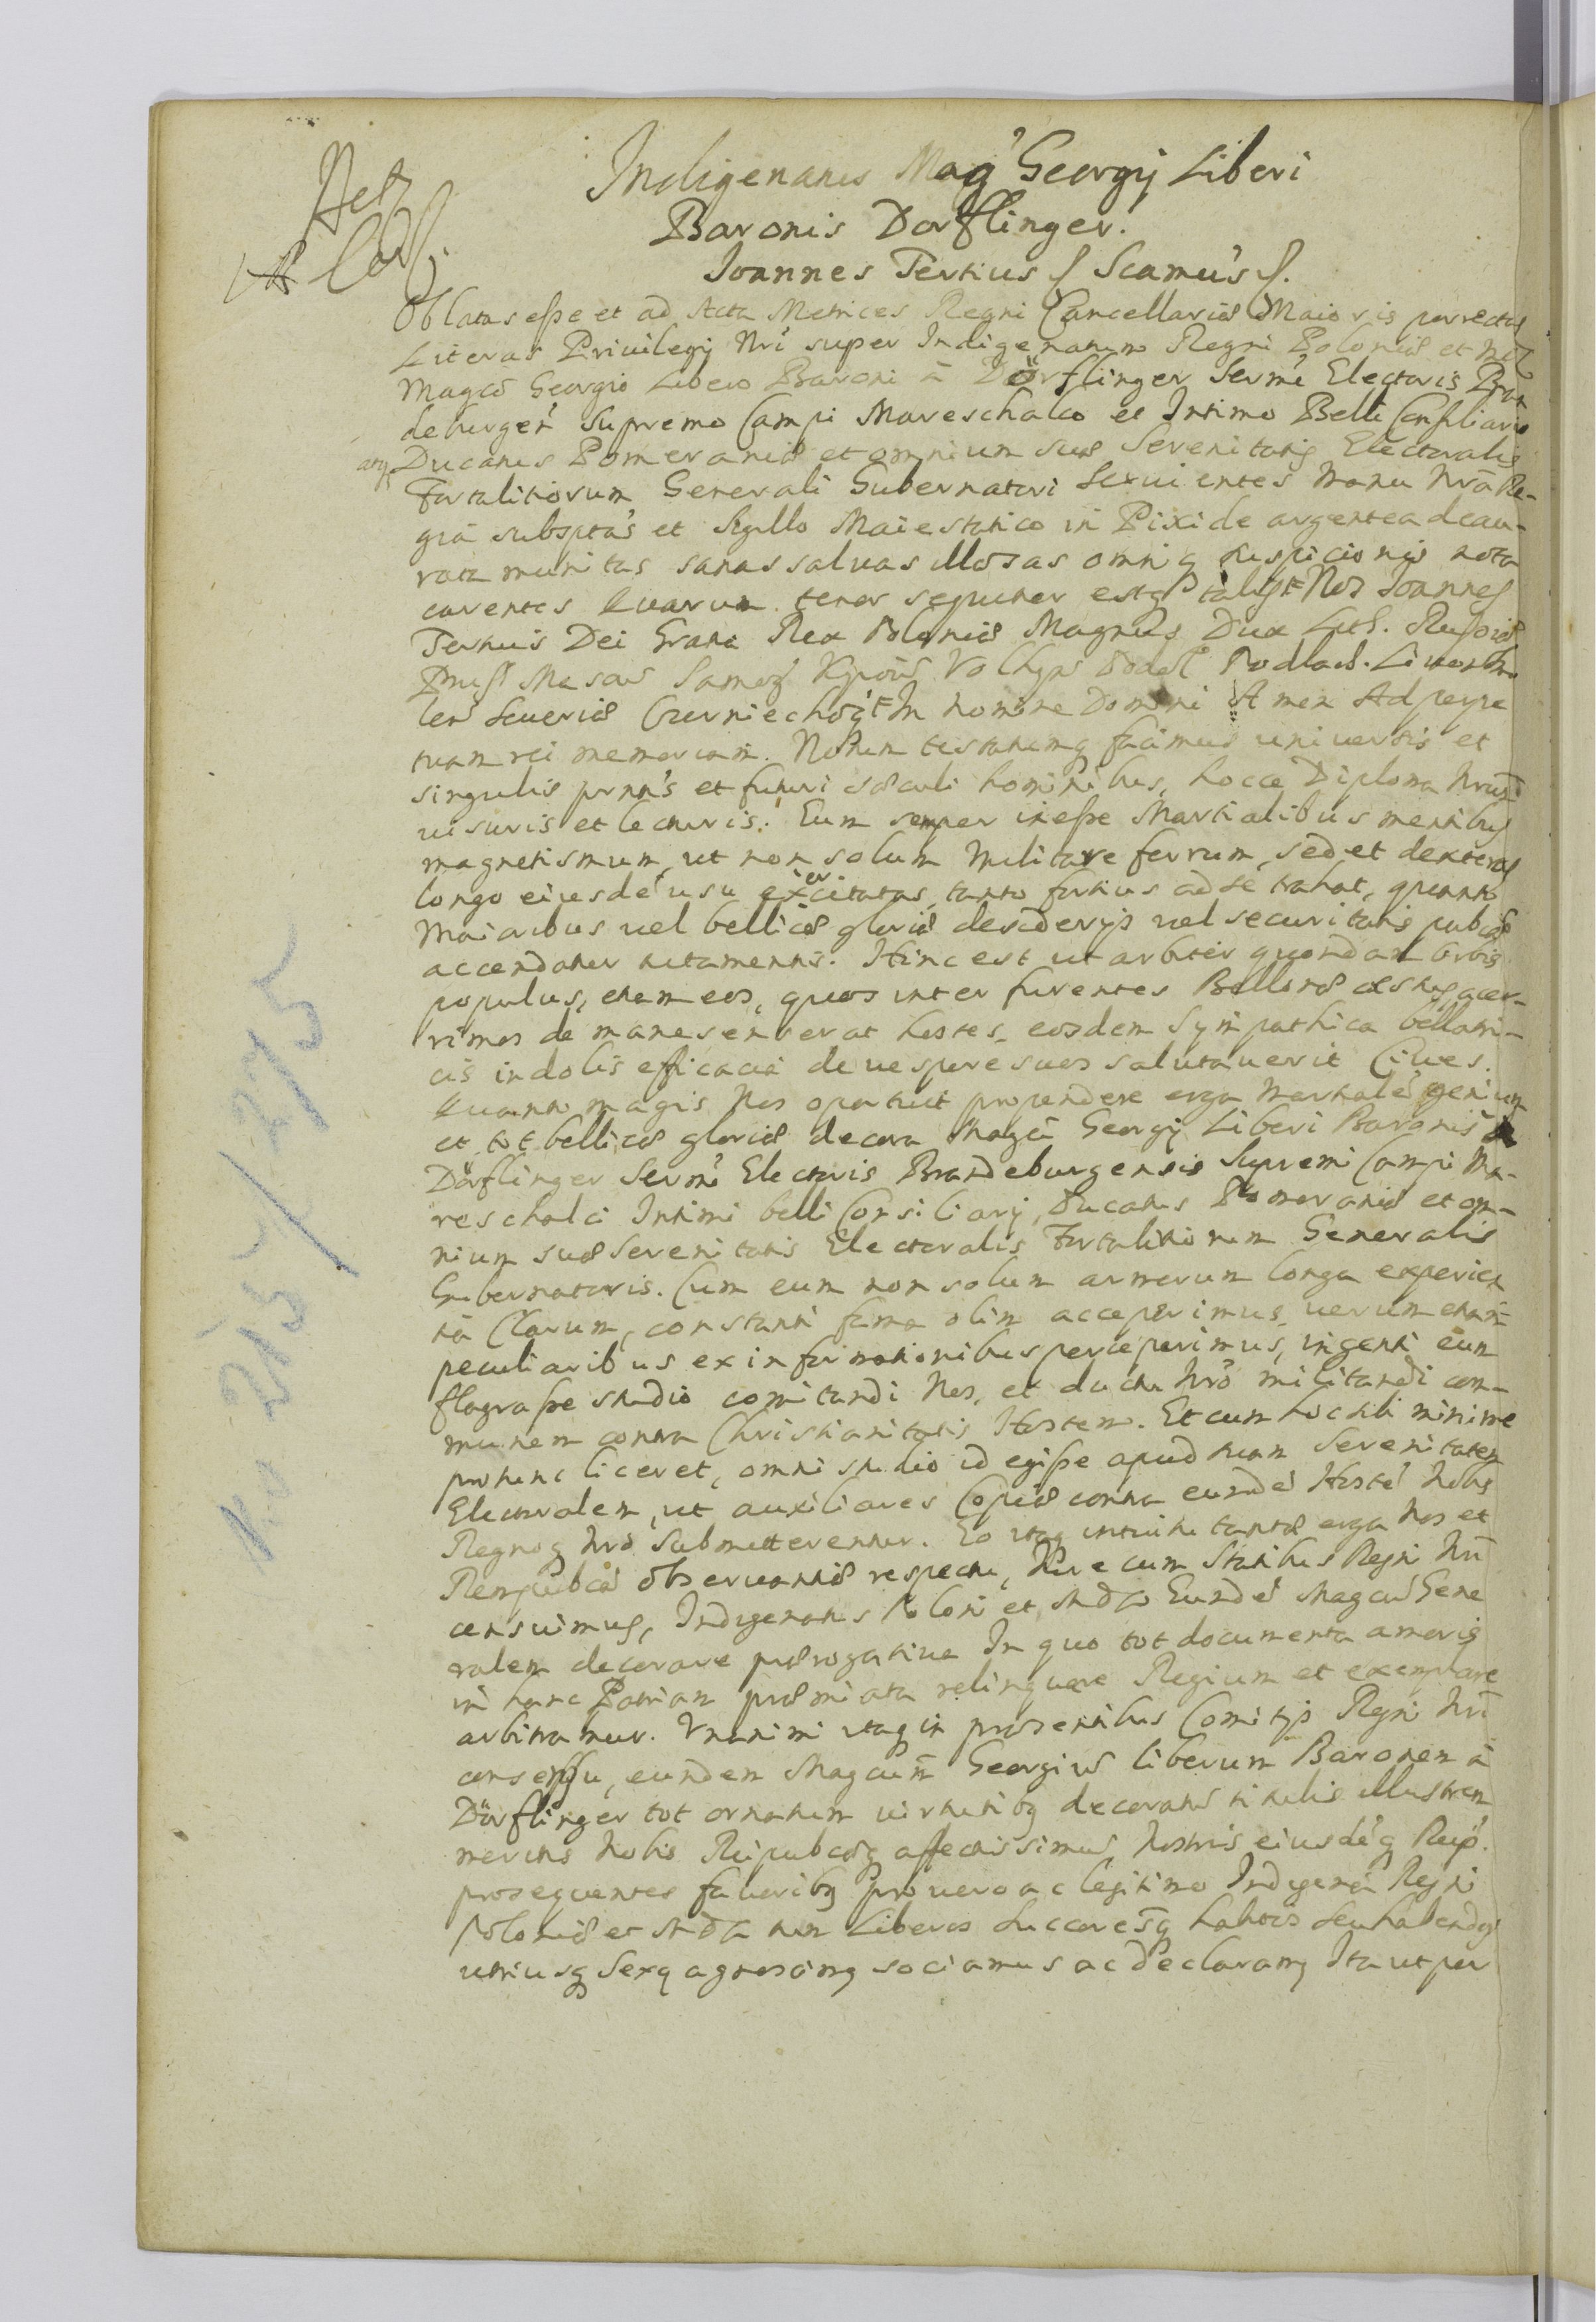 Indigenatus Mag' Georgij Liberi
Baronis Dorflinger.
Joannes Tertius // Scamus' //.
Oblatas esse et ad Acta Metrices Regni Cancellariæ Maioris porrectas
Literas Priuilegij Nri super Indigenatum Regni Poloniæ et
Magco Georgio Libero Baroni à Dörflinger Sermi Electoris Bran
deburgen' Supremo Campi Mareschalco et Intimo Belli Consiliario
atq Ducatus Pomeraniæ et omnium suæ Serenitatis Electoralis
Fortalitiorum Generali Gubernatori seruientes manu Nrã Re-
gia subsptas et Sigillo Maiestatico in Pixide argentea deau-
rata munitas sanas saluas illæsas omniq suspicionis nota
carentes quarum tenor sequitur estq talis Nos Joannes
Tertius Dei Gratia Rex Poloniæ Magnus Dux Lith. Russiæ
Pruss Masov Samog Kijoviæ Volhyn Podol Podlach. Livon
len Seueriæ Czerniechoq In Nomine Domini Amen Ad perpe
tuam rei memoriam. Notum testatumq facimus uniuersis et
singulis prntis et futuri sæculi hominibus, hocce Diploma Nrum
uisuris et lecturis. Eum semper inesse Martialibus mentibus
magnetismum, ut non solum Militare ferrum, sed et dexteras
longo eiusde' usu exercitatas, tanto fortius ad se trahat, quanto
Maioribus uel bellicæ gloriæ desiderijs uel securitatis pubcæ
accendatur nutamentis. Hinc est ut arbiter quondam Orbis
populus, etiam eos, quos inter furentes Bellonæ æstus, acer-
rimos de mane senserat hostes, eosdem sympathica bellatri-
cis indolis efficacia de uespere suos salutauerit Ciues.
Quanto magis Nos oportuit propendere erga Martiale' genium
et tot bellicæ gloriæ decora Magci Georgij Liberi Baronis à
Dörflinger Sermi Electoris Brandeburgensis Supremi Campi Ma-
reschalci Intimi belli Consiliarij, Ducatus Pomeraniæ et om-
nium suæ Serenitatis Electoralis Fortalitiorum Generalis
Gubernatoris. Cum eum non solum armorum longa experien
tia Clarum, constanti fama olim acceperimus, uerum etiam
peculiaribus ex informationibus perceperimus, ingenti eum
flagrasse studio comitandi Nos, et ductu Nro militandi com-
munem contra Christianitatis Hostem. Et cum hoc sibi minime
pro tunc liceret, omni studio id egisse apud suam Serenitatem
Electoralem, ut auxiliares Copiæ contra eunde' Hoste' Nobis
Regnoq Nro submitterentur. Eo itaq intuitu tantæ erga Nos et
Rempubcã obseruantiæ respectu, Nos cum Statibus Regni Nri
censuimus, Indigenatus Poloni et MDL Eunde' Magcum Gene
ralem decorare prærogatiua In quo tot documenta amoris
in hanc Patriam præmiata relinquere Regium et exemplare
arbitramur. Vnanimi itaq in præsentibus Comitijs Regni Nri
consensu, eundem Magcum Georgium liberum Baronem à
Dörflinger tot ornatum uirtutibq decoratu' titulis illustrem
meritis Nobis Reipubcæq affectissimum, Nostris eiusde'q Reip.
prosequentes fauoribq pro uero ac legitimo Indigena Regni
Poloniæ et MDL tum Liberos Successoresq habitos seu habendos
utriusq Sexq agnoscimq sociamus ac declaramq Ita ut per
No 215 / 215